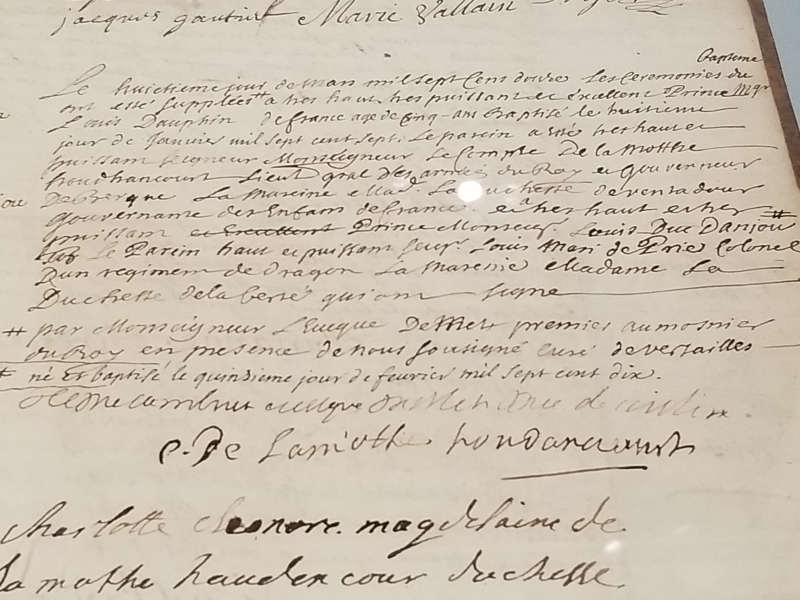 jacques gautier Marie Vallain
Le huictieme jour de Mars mil sept cens douze les Ceremonies du bapteme
ont esté supplées # a tres haut tres puissant et excellent Prince Mgr
Louis Dauphin de france agé de Cinq ans Baptisé le huitieme
jour de Janvier mil sept cent sept. Le parein a esté tres haut et
puissant seigneur Monseigneur Le Compte De la Motthe
houdhancourt Lieut gral Des armées du Roy et gouverneur
De Bergue La Mareine Mad. La duchesse de ventadour
gouvernante des Enfans de france. et a tres haut et tres
puissant et Excellent Prince Monsieur. Louis Duc Danjou #
Le Parein haut et puissant seigr. Louis Mari de Prie Colonel
Dun regiment de Dragon La Mareine Madame La
Duchesse de la ferté qui ont signé
# par Monseigneur L'Eveque De Mets premier aumosnier
du Roy en presence de nous soussigné curé de versailles
# né et baptisé le quinzieme jour de fevrier mil sept cent dix.
e. De Lamothe houdancourt
charlotte eleonore magdelaine de
la mothe haudencour duchesse